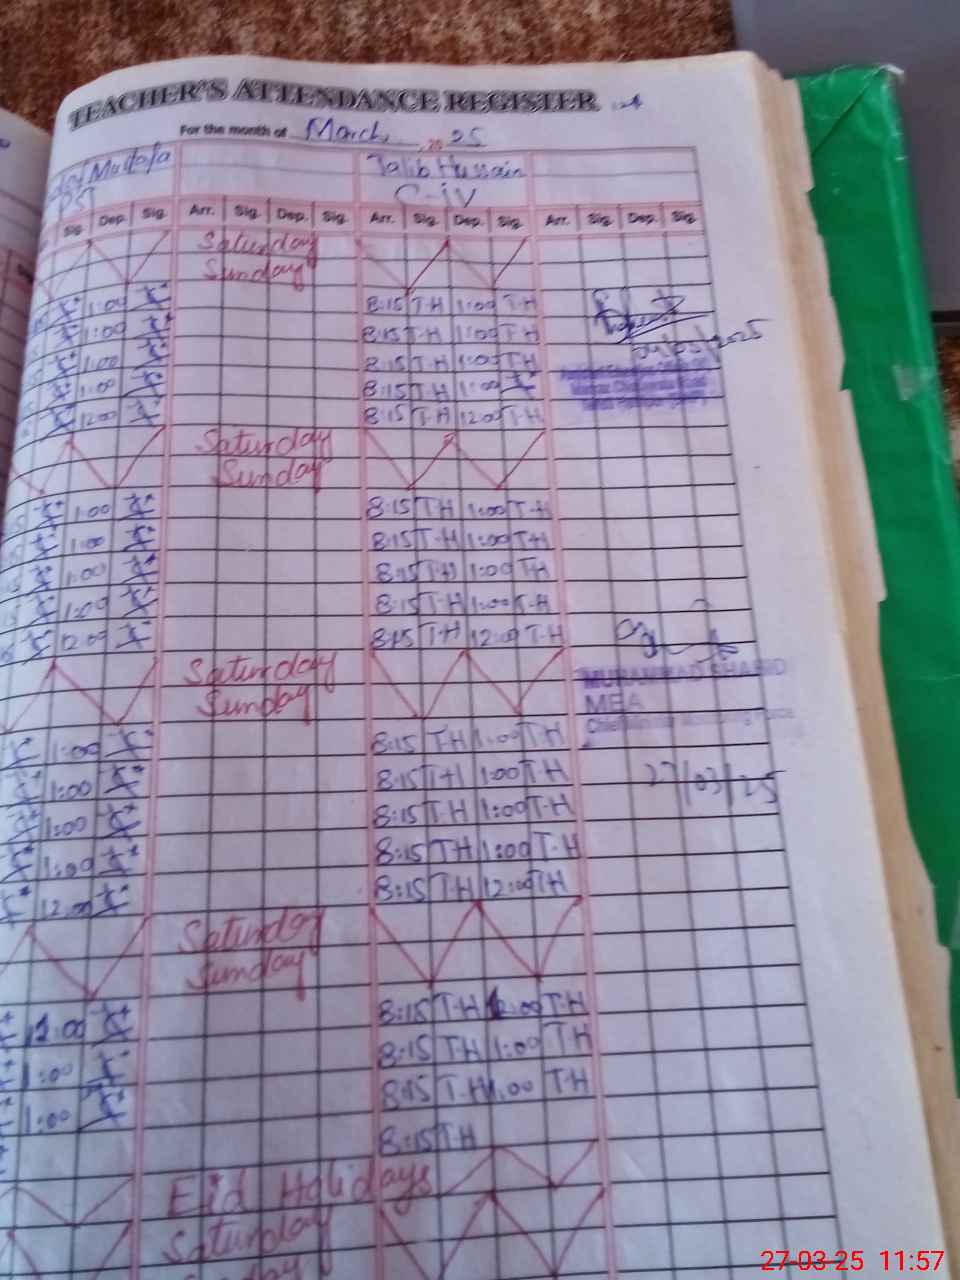 TEACHER'S ATTENDANCE REGISTER
For the month of March, 2025
Mustafa Talib Hussain
PST C-iv
Sig. Dep. Sig. Arr. Sig. Dep. Sig. Arr. Sig. Dep. Sig. Arr. Sig. Dep. Sig.
Saturday
Sunday
1:00 8:15 T-H 1:00 T-H
1:00 8:15 T-H 1:00 T-H
1:00 8:15 T-H 1:00 T-H
1:00 8:15 T-H 1:00
12:00 8:15 T-H 12:00 T-H
Saturday
Sunday
1:00 8:15 T-H 1:00 T-H
1:00 8:15 T-H 1:00 T-H
1:00 8:15 T-H 1:00 T-H
1:00 8:15 T-H 1:00 T-H
12:00 8:15 T-H 12:00 T-H
Saturday
Sunday
MUHAMMAD SHAHID
MEA
1:00 8:15 T-H 1:00 T-H
1:00 8:15 T-H 1:00 T-H 27/03/25
1:00 8:15 T-H 1:00 T-H
1:00 8:15 T-H 1:00 T-H
12:00 8:15 T-H 12:00 T-H
Saturday
Sunday
8:15 T-H T-H
1:00 8:15 T-H 1:00 T-H
1:00 8:15 T-H 1:00 T-H
8:15 T-H
Eid Holidays
Saturday
27-03-25 11:57